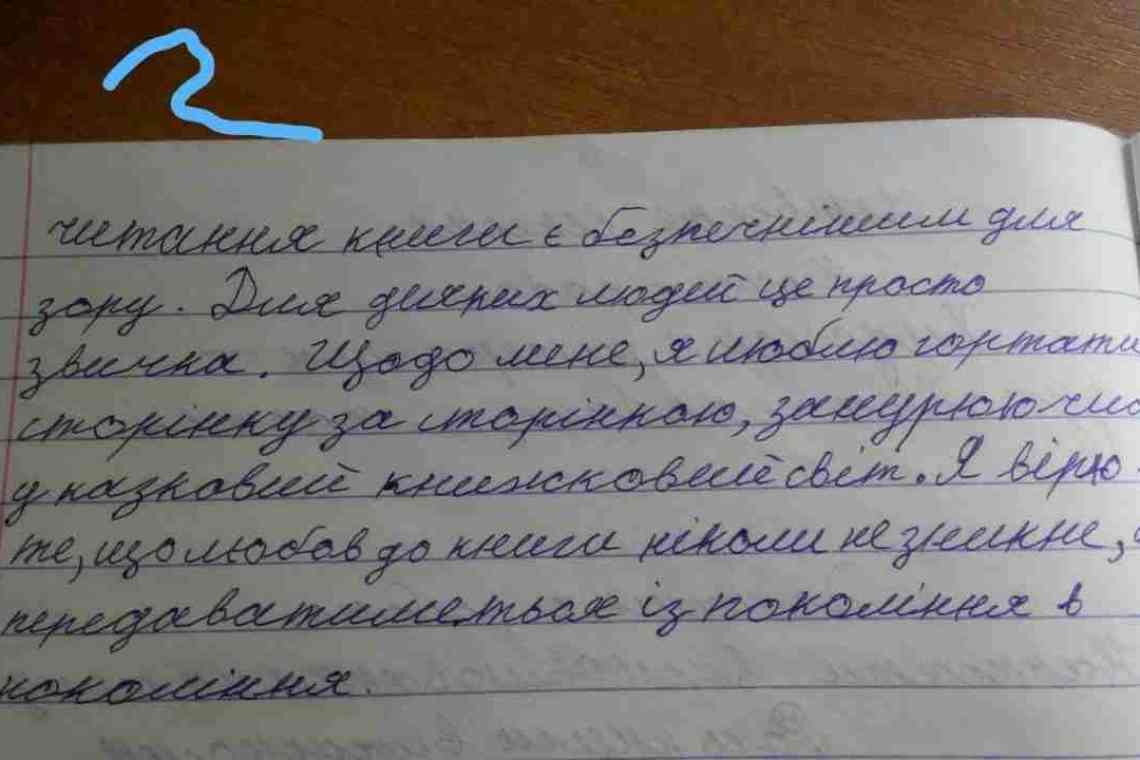 читання книги є безпечнішим для
зору. Для деяких людей це просто
звичка. Щодо мене, я люблю гортати
сторінку за сторінкою, занурюючись
у казковий книжковий світ. Я вірю
те, що любов до книги ніколи не зникне,
передаватиметься із покоління в
покоління.